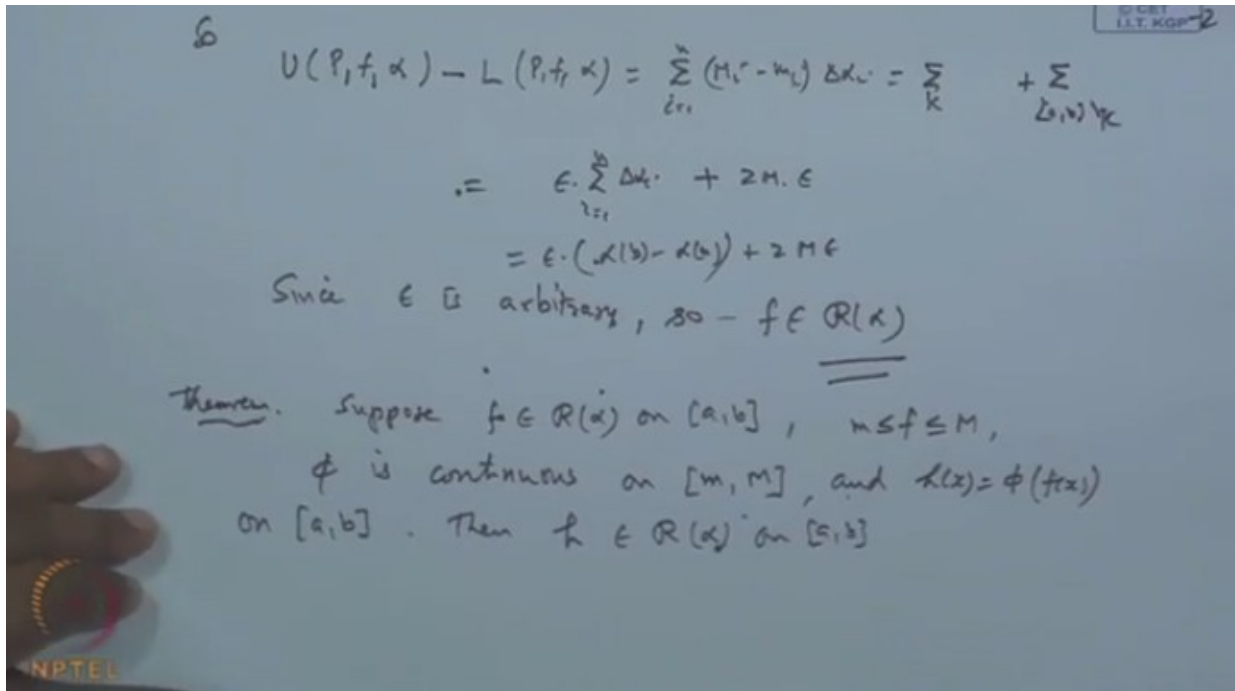 © CET
I.I.T. KGP -2
So
U(P, f, α) - L(P, f, α) = Σ_{i=1}^{n} (M_i - m_i) Δα_i = Σ_K + Σ_{[a,b]\K}
.= ε. Σ_{i=1}^{n} Δα_i + 2M. ε
= ε. (α(b) - α(a)) + 2 M ε
Since ε is arbitrary, so - f ∈ R(α)
Theorem. Suppose f ∈ R(α) on [a,b], m ≤ f ≤ M,
ϕ is continuous on [m, M], and h(x) = ϕ(f(x))
on [a,b]. Then h ∈ R(α) on [a,b]
NPTEL